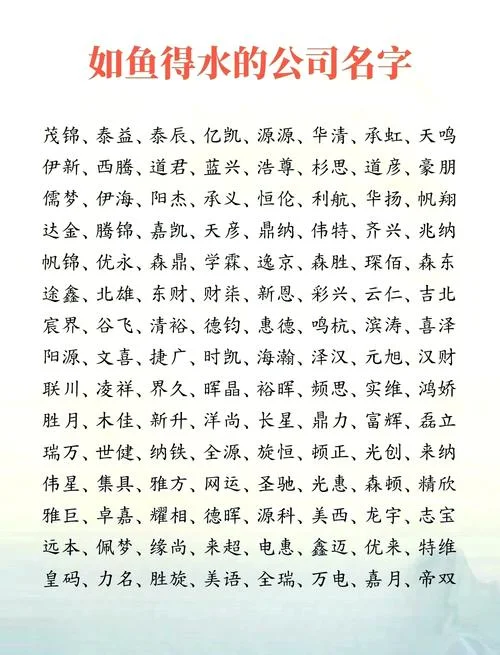 如鱼得水的公司名字
茂锦、泰益、泰辰、亿凯、源源、华清、承虹、天鸣
伊新、西腾、道君、蓝兴、浩尊、杉思、道彦、豪朋
儒梦、伊海、阳杰、承义、恒伦、利航、华扬、帆翔
达金、腾锦、嘉凯、天彦、鼎纳、伟特、齐兴、兆纳
帆锦、优永、森鼎、学霖、逸京、森胜、琛佰、森东
途鑫、北雄、东财、财柒、新恩、彩兴、云仁、吉北
宸界、谷飞、清裕、德钧、惠德、鸣杭、滨涛、喜泽
阳源、文喜、捷广、时凯、海瀚、泽汉、元旭、汉财
联川、凌祥、界久、晖晶、裕晖、频思、实维、鸿娇
胜月、木佳、新升、洋尚、长星、鼎力、富辉、磊立
瑞万、世健、纳铁、全源、旋恒、顿正、光创、来纳
伟星、集具、雅方、网运、圣驰、光惠、森顿、精欣
雅巨、卓嘉、耀相、德晖、源科、美西、龙宇、志宝
远本、佩梦、缘尚、来超、电惠、鑫迈、优来、特维
皇码、力名、胜旋、美语、全瑞、万电、嘉月、帝双